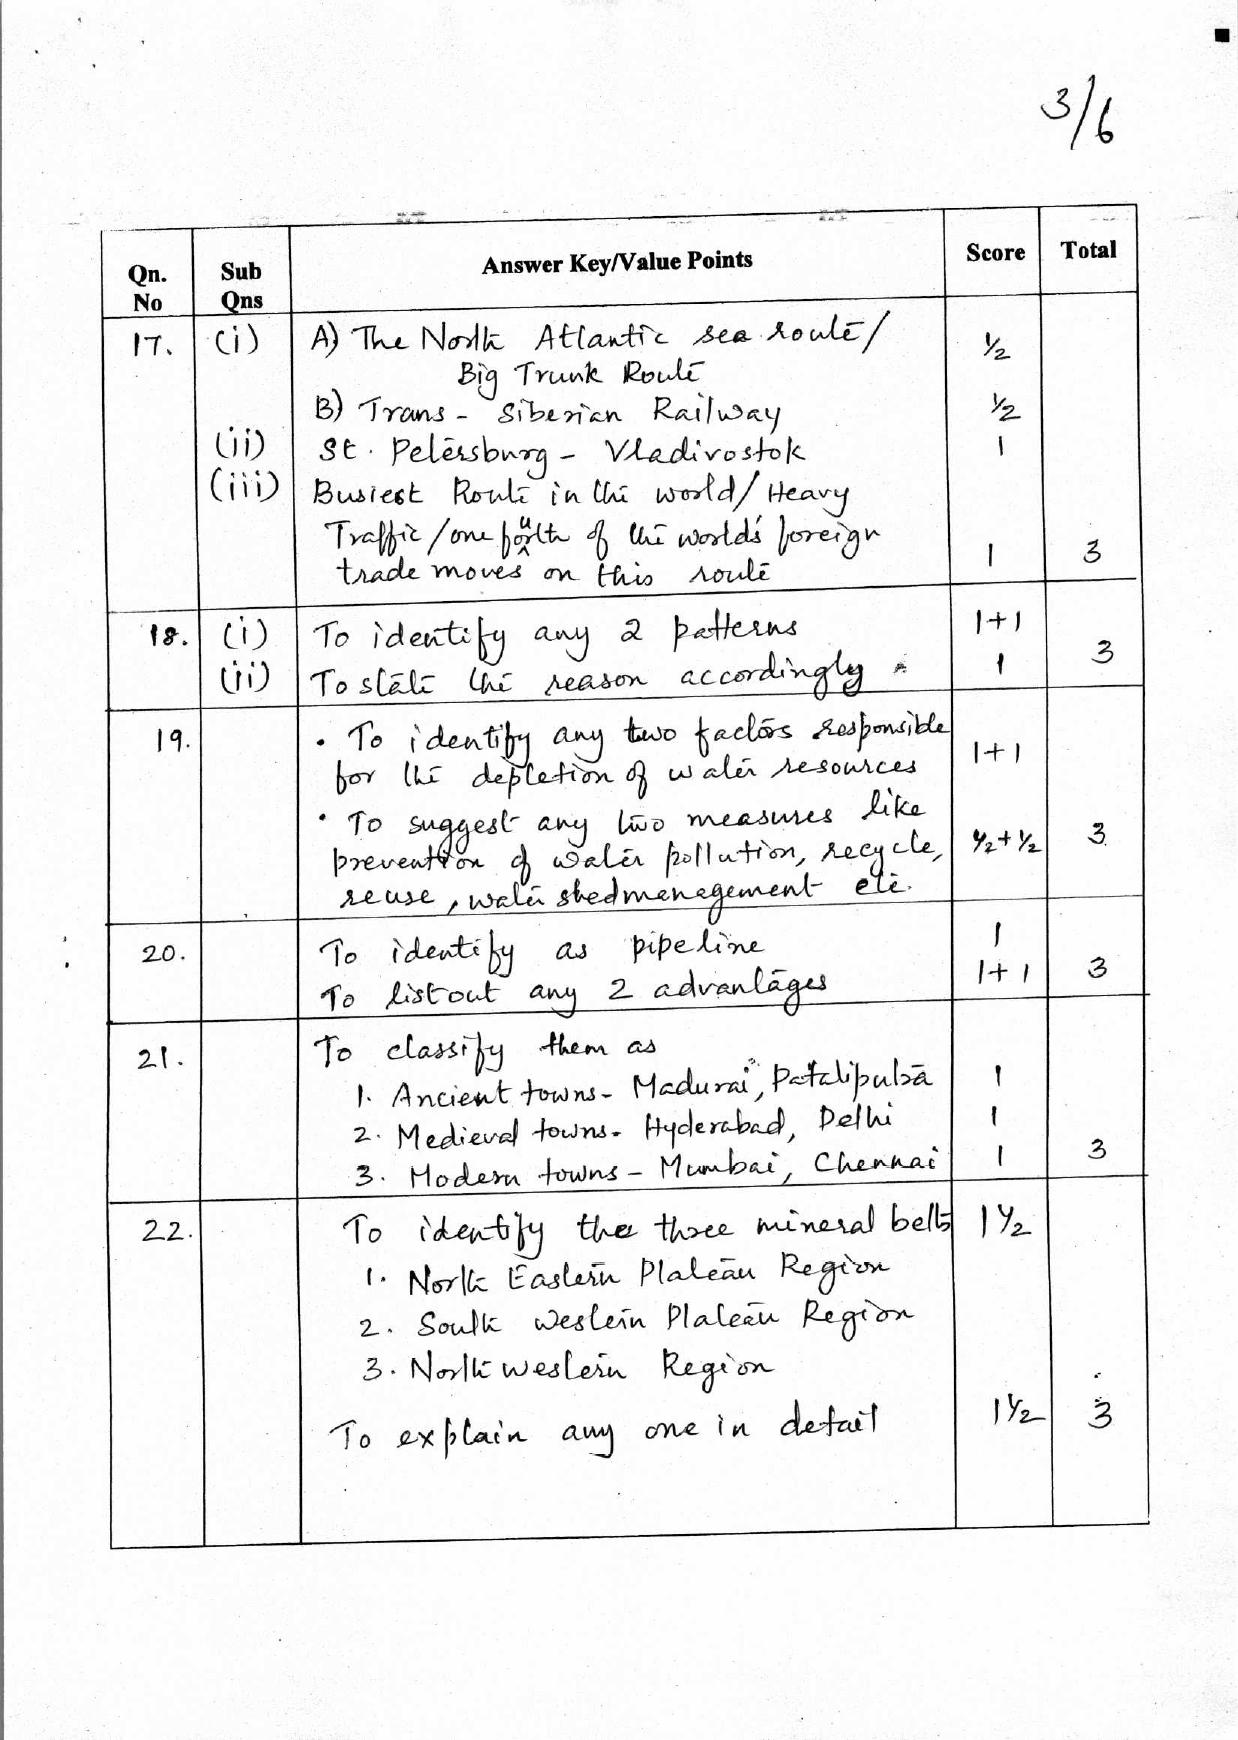 3/6
Qn. No Sub Qns Answer Key/Value Points Score Total
17. (i) A) The North Atlantic sea route/ ½
Big Trunk Route
B) Trans - Siberian Railway ½
(ii) St. Petersburg - Vladivostok 1
(iii) Busiest Route in the world/Heavy
Traffic/one fourth of the world's foreign
trade moves on this route 1 3
18. (i) To identify any 2 patterns 1+1
(ii) To state the reason accordingly 1 3
19. • To identify any two factors responsible
for the depletion of water resources 1+1
• To suggest any two measures like
prevention of water pollution, recycle, ½+½ 3
reuse, water shed management etc.
20. To identify as pipeline 1
To list out any 2 advantages 1+1 3
21. To classify them as
1. Ancient towns - Madurai, Pataliputra 1
2. Medieval towns - Hyderabad, Delhi 1
3. Modern towns - Mumbai, Chennai 1 3
22. To identify the three mineral belts 1½
1. North Eastern Plateau Region
2. South Western Plateau Region
3. North western Region
To explain any one in detail 1½ 3